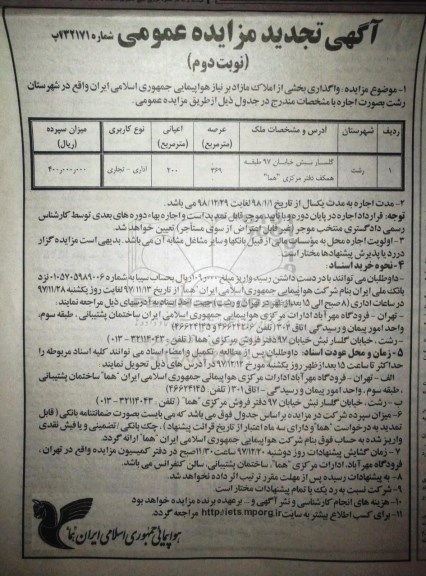 آگهی تجدید مزایده عمومی شماره ۲۳۲۱۷۱پ
(نوبت دوم)
۱- موضوع مزایده: واگذاری بخشی از املاک مازاد بر نیاز هواپیمایی جمهوری اسلامی ایران واقع در شهرستان
رشت بصورت اجاره با مشخصات مندرج در جدول ذیل از طریق مزایده عمومی.
ردیف شهرستان آدرس و مشخصات ملک عرصه (مترمربع) اعیانی (مترمربع) نوع کاربری میزان سپرده (ریال)
۱ رشت گلسار نبش خیابان ۹۷ طبقه همکف دفتر مرکزی "هما" ۳۶۹ ۲۰۰ اداری - تجاری ۴۰۰٫۰۰۰٫۰۰۰
۲- مدت اجاره به مدت یکسال از تاریخ ۹۸/۱/۱ لغایت ۹۸/۱۲/۲۹ می باشد.
توجه: قرارداد اجاره در پایان دوره با تایید موجر قابل تمدید است و اجاره بهاء دوره های بعدی توسط کارشناس
رسمی دادگستری منتخب موجر (غیر قابل اعتراض از سوی مستأجر) تعیین خواهد شد.
۳- اولویت اجاره محل به مؤسسات مالی از قبیل بانکها و سایر مشاغل مشابه آن می باشد. بدیهی است مزایده گزار
در رد یا پذیرش پیشنهادها مختار است.
۴- نحوه خرید اسناد:
داوطلبان می توانند با در دست داشتن رسید واریز مبلغ ریال بحساب سیبا به شماره ۰۱۰۵۷۰۵۹۸۹۰۰۶ نزد
بانک ملی ایران بنام شرکت هواپیمایی جمهوری اسلامی ایران "هما" از تاریخ ۹۷/۱۱/۱۳ لغایت روز یکشنبه ۹۷/۱۱/۲۸
در ساعات اداری (۸ صبح الی ۱۵ بعد از ظهر در تهران و رشت) جهت اخذ اسناد به آدرسهای ذیل مراجعه نمایند.
- تهران - فرودگاه مهرآباد ادارات مرکزی هواپیمایی جمهوری اسلامی ایران ساختمان پشتیبانی، طبقه سوم،
واحد امور پیمان و رسیدگی اتاق ۳۰۴ (تلفن ۴۶۶۲۴۲۶۶ و ۴۶۶۲۴۲۳۵)
- رشت، خیابان گلسار نبش خیابان ۹۷ دفتر فروش مرکزی "هما" (تلفن: ۳۲۱۱۴۰۴۳ - ۰۱۳)
۵- زمان و محل عودت اسناد: داوطلبان پس از مطالعه، تکمیل و امضاء اسناد می توانند کلیه اسناد مربوطه را
حداکثر تا ساعت ۱۵ بعد از ظهر روز یکشنبه مورخ ۹۷/۱۲/۱۲ در آدرس های ذیل تحویل نمایند.
الف - تهران - فرودگاه مهرآباد ادارات مرکزی هواپیمایی جمهوری اسلامی ایران "هما" ساختمان پشتیبانی
، طبقه سوم، واحد امور پیمان و رسیدگی - اتاق ۳۰۱ (تلفن ۴۶۶۲۴۲۴۵)
ب - رشت، خیابان گلسار نبش خیابان ۹۷ دفتر فروش مرکزی "هما" (تلفن: ۳۲۱۱۴۰۴۳ - ۰۱۳)
۶- میزان سپرده شرکت در مزایده بر اساس جدول فوق می باشد که می بایست بصورت ضمانتنامه بانکی (قابل
تمدید به درخواست "هما" و دارای سه ماه اعتبار از تاریخ قرائت پیشنهاد)، چک بانکی / تضمینی و یا فیش نقدی
واریز شده به حساب فوق بنام شرکت هواپیمایی جمهوری اسلامی ایران "هما" ارائه گردد.
۷- زمان گشایش پیشنهادات روز دوشنبه ۹۷/۱۲/۲۰ ساعت ۱۱/۳۰ صبح در دفتر کمیسیون مزایده واقع در تهران،
فرودگاه مهرآباد، ادارات مرکزی "هما"، ساختمان پشتیبانی، سالن کنفرانس می باشد.
۸- به پیشنهادات رسیده پس از مهلت مقرر ترتیب اثر داده نخواهد شد.
۹- شرکت نسبت به رد یک یا تمام پیشنهادات مختار است.
۱۰- هزینه های انجام کارشناسی و نشر آگهی و ... بر عهده برنده مزایده خواهد بود
۱۱- برای کسب اطلاع بیشتر به سایت http://iets.mporg.ir مراجعه گردد.
هواپیمایی جمهوری اسلامی ایران هما